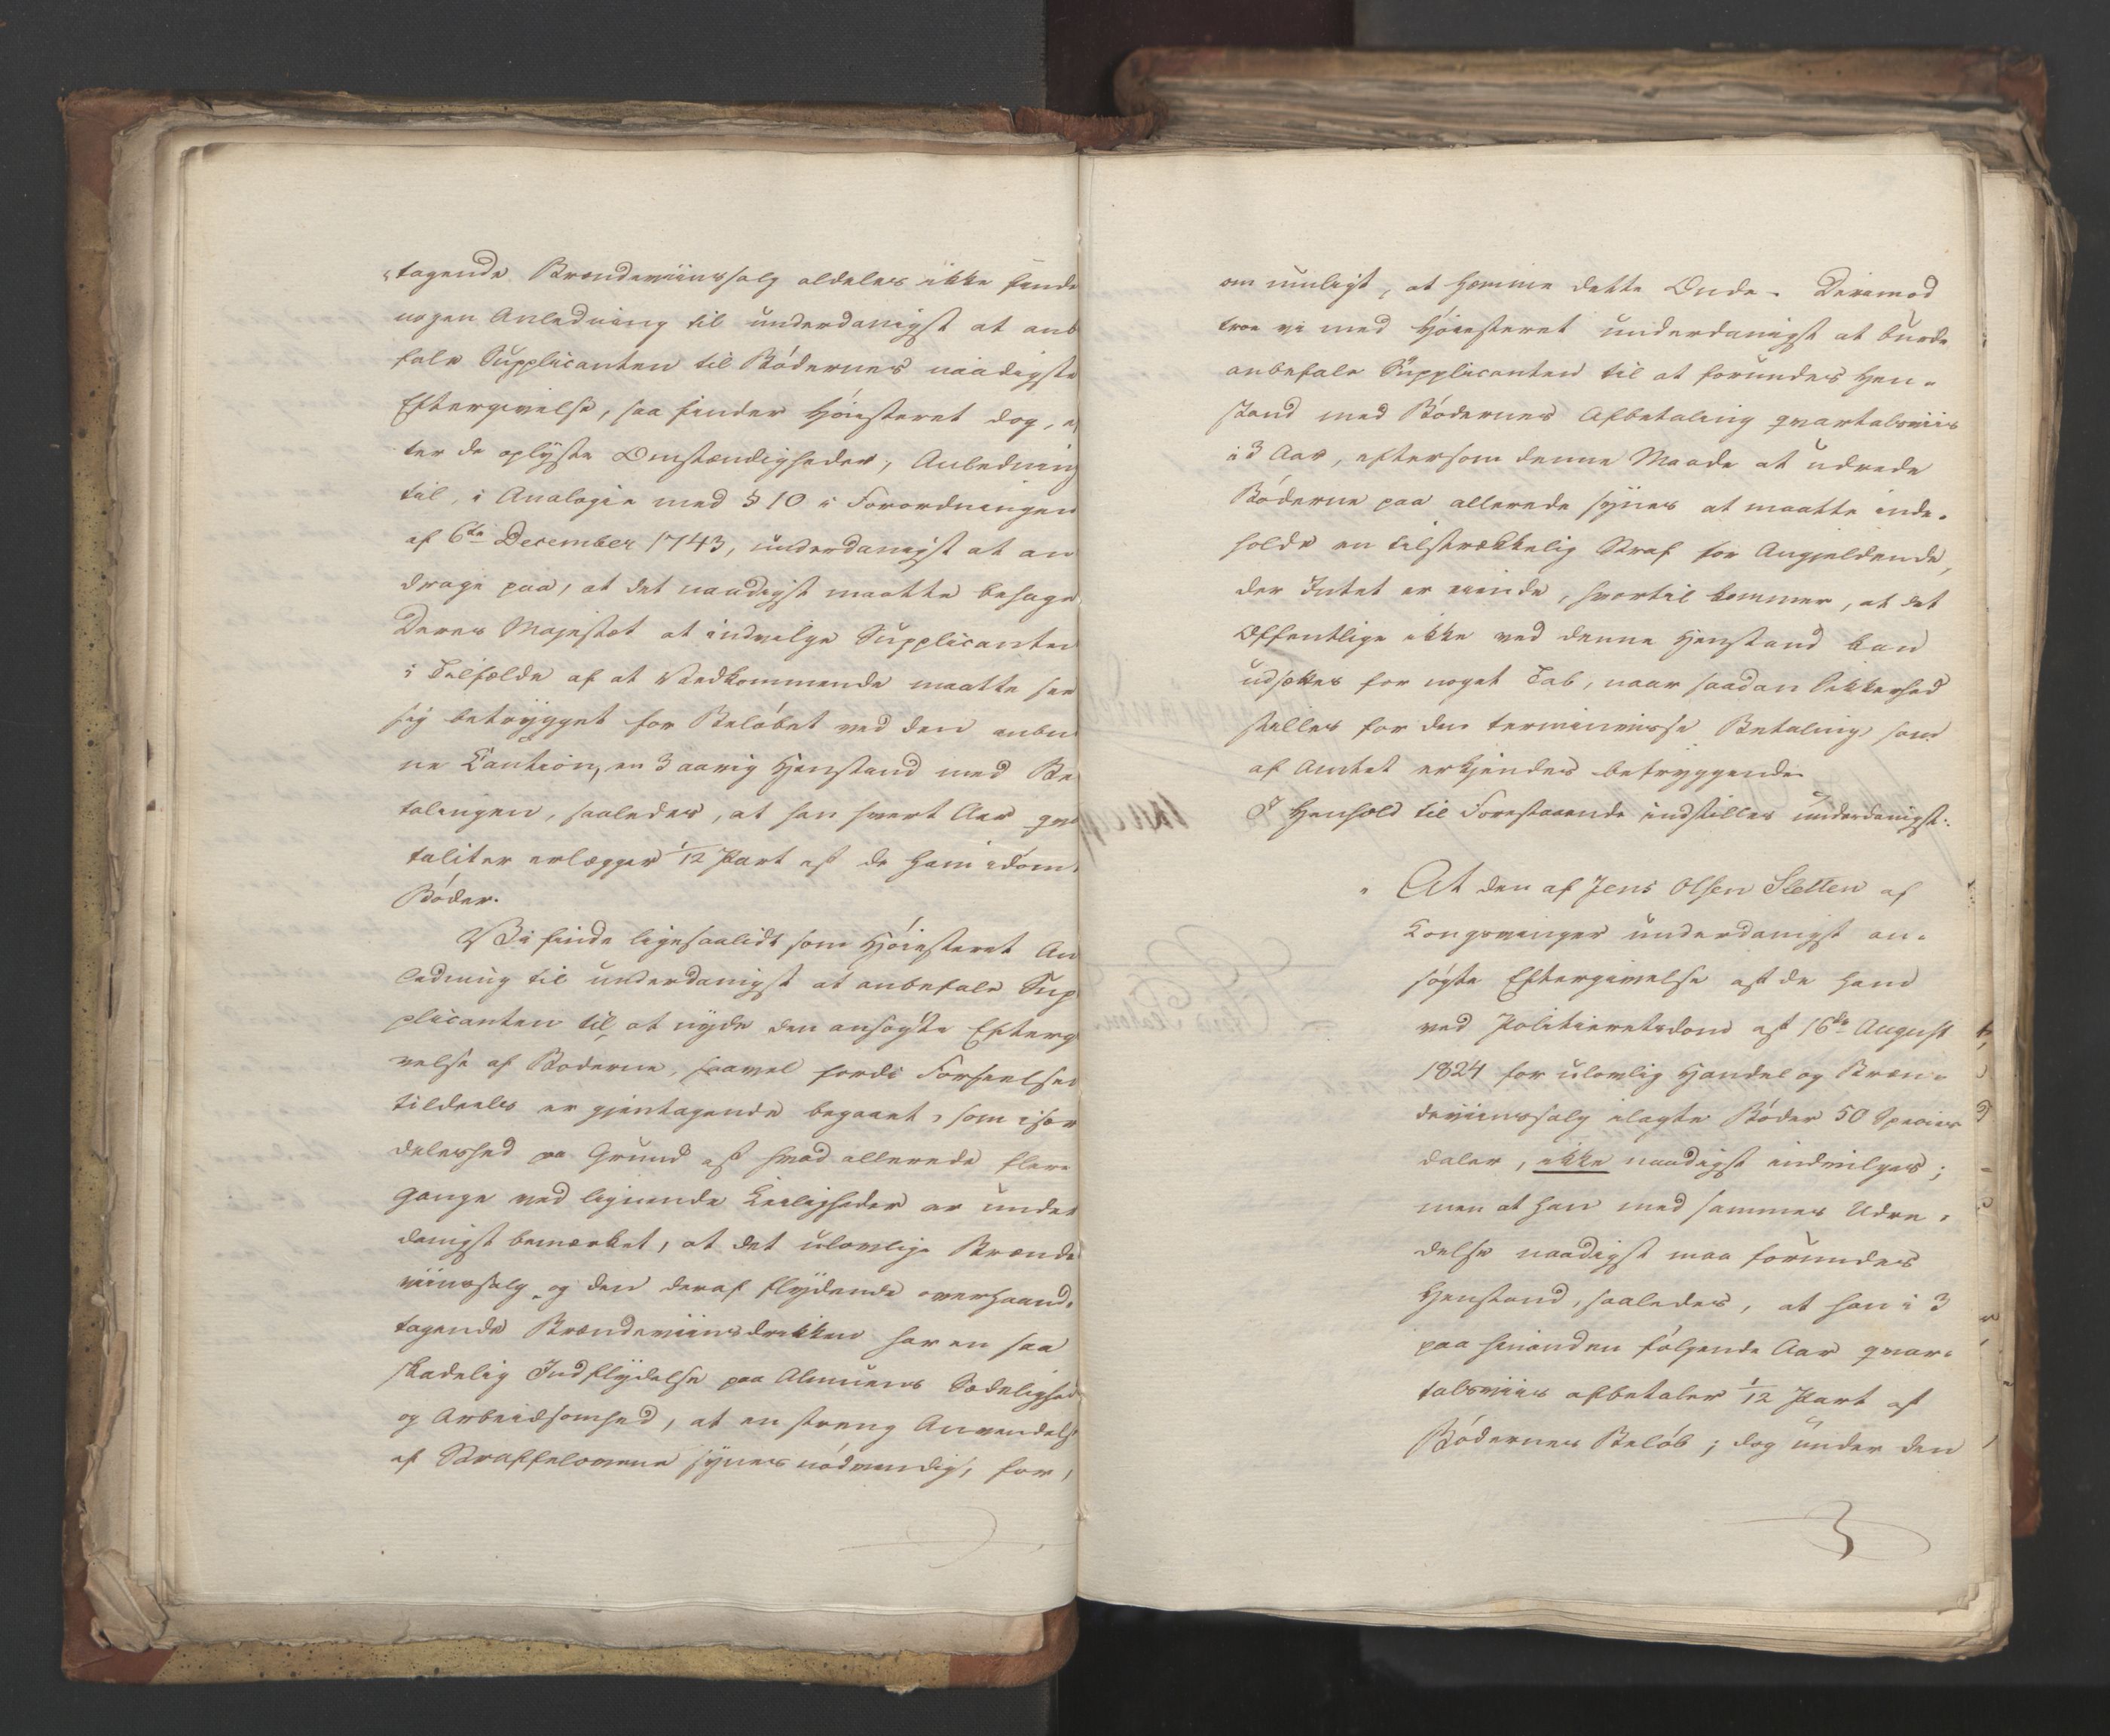 tagende Brændeviinssalg aldeles ikke finde
nogen Anledning til underdanigst at anb
fale Supplicanten til Bödernes naadigste
Eftergivelse, saa finder Höiesteret dog, ef
ter de oplyste Omstændigheder, Anledning
til, i Analogie med § 10 i Forordningen
af 6te December 1743, underdanigst at an
drage paa, at det naadigst maatte behage
Deres Majestæt at indvilge Supplicanten
i Tilfælde af at Vedkommende maatte see
sig betrygget for Belöbet ved den anbu
ne Caution, en 3 aarig Henstand med Be
talingen, saaledes, at han hvert Aar qva
taliter erlægger 1/12 Part af de ham idömt
Böder.
Vi finde ligesaalidt som Höiesteret An
ledning til underdanigst at anbefale Sup
plicanten til at nyde den ansögte Efterg
velse af Böderne, saavel fordi Forseelsen
tildeels er gjentagende begaaet, som især
deleshed paa Grund af hvad allerede flere
Gange ved lignende Leiligheder er under
danigst bemærket, at det ulovlige Brænde
viinssalg og den deraf flydende overhaand-
tagende Brændeviinsdrikken har en saa
skadelig Indflydelse paa Almuens Sædelighed
og Arbeidsomhed, at en streng Anvendelse
af Straffelovene synes nödvendig, for,
om muligt, at hæmme dette Onde. Derimod
troe vi med Höiesteret underdanigst at burde
anbefale Supplicanten til at forundes Hen-
stand med Bödernes Afbetaling qvartalsviis
i 3 Aar, eftersom denne Maade at udrede
Böderne paa allerede synes at maatte inde-
holde en tilstrækkelig Straf for Angjeldende,
der Intet er eiende, hvortil kommer, at det
Offentlige ikke ved denne Henstand kan
udsættes for noget Tab, naar saadan Sikkerhed
stilles for den terminvise Betaling, som
af Amtet erkjendes betryggende.
I Henhold til Forestaaende indstilles underdanigst:
At den af Jens Olsen Sletten af
Kongsvinger underdanigst an-
søgte Eftergivelse af de ham
ved Politieretsdom af 16de August
1824 for ulovlig Handel og Bræn-
deviinssalg ilagte Böder 50 Species
daler, ikke naadigst indvilges;
men at han med sammes Udre-
delse naadigst maa forundes
Henstand, saaledes, at han i 3
paa hinanden fölgende Aar qvar-
talsviis afbetaler 1/12 Part af
Bödernes Belöb; dog under den